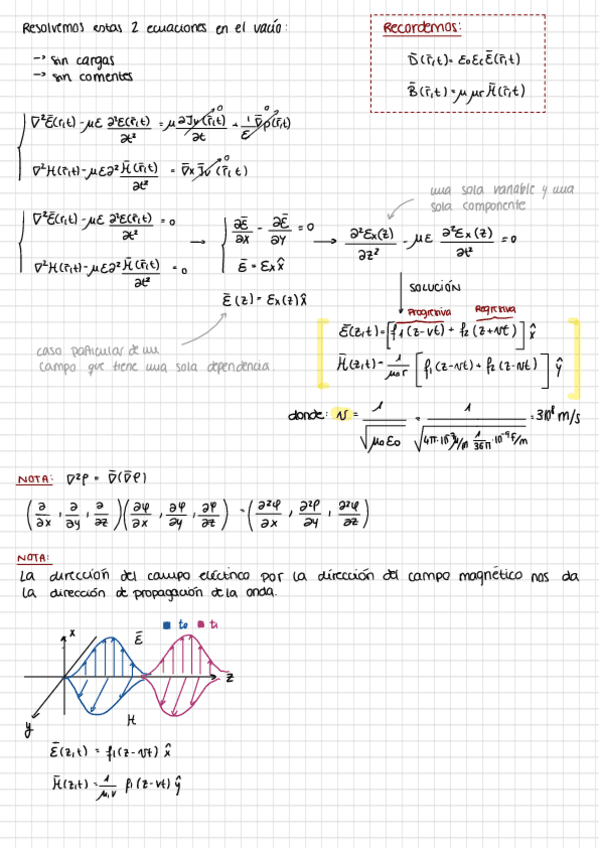 Resolvemos estas 2 ecuaciones en el vacío:
→ sin cargas
→ sin corrientes
Recordemos:
D̄(r̄,t) = ε₀εᵣĒ(r̄,t)
B̄(r̄,t) = μ μr H̄(r̄,t)
∇²Ē(r̄,t) - με ∂²Ē(r̄,t)/∂t² = μ ∂J̄v(r̄,t)/∂t + 1/ε ∇̄ρ(r̄,t)
0 0
∇²H̄(r̄,t) - με∂² H̄(r̄,t)/∂t² = ∇̄x J̄v(r̄,t)
0
una sola variable y una
sola componente
∇²Ē(r,t) - με ∂²Ē(r̄,t)/∂t² = 0
∇²H(r̄,t) - με∂² H̄(r̄,t)/∂t² = 0
→
∂Ē/∂x - ∂Ē/∂y = 0
Ē = Ex x̂
→ ∂²Ex(z)/∂z² - με ∂²Ex(z)/∂t² = 0
Ē(z) = Ex(z) x̂
SOLUCIÓN
caso particular de un
campo que tiene una sola dependencia
Progresiva Regresiva
Ē(z,t) = [f₁(z-vt) + f₂(z+vt)] x̂
H̄(z,t) = 1/μ₀v [f₁(z-vt) + f₂(z-vt)] ŷ
donde: v = 1/√(μ₀ε₀) = 1/√(4π·10⁻⁷ H/m 1/36π ·10⁻⁹ F/m) = 3·10⁸ m/s
NOTA: ∇²φ = ∇̄(∇̄φ)
(∂/∂x, ∂/∂y, ∂/∂z)(∂φ/∂x, ∂φ/∂y, ∂φ/∂z) = (∂²φ/∂x, ∂²φ/∂y, ∂²φ/∂z)
NOTA:
La dirección del campo eléctrico por la dirección del campo magnético nos da
la dirección de propagación de la onda.
t₀ t₁
x
Ē
z
H
y
Ē(z,t) = f₁(z-vt) x̂
H̄(z,t) = 1/μ,v f₁(z-vt) ŷ